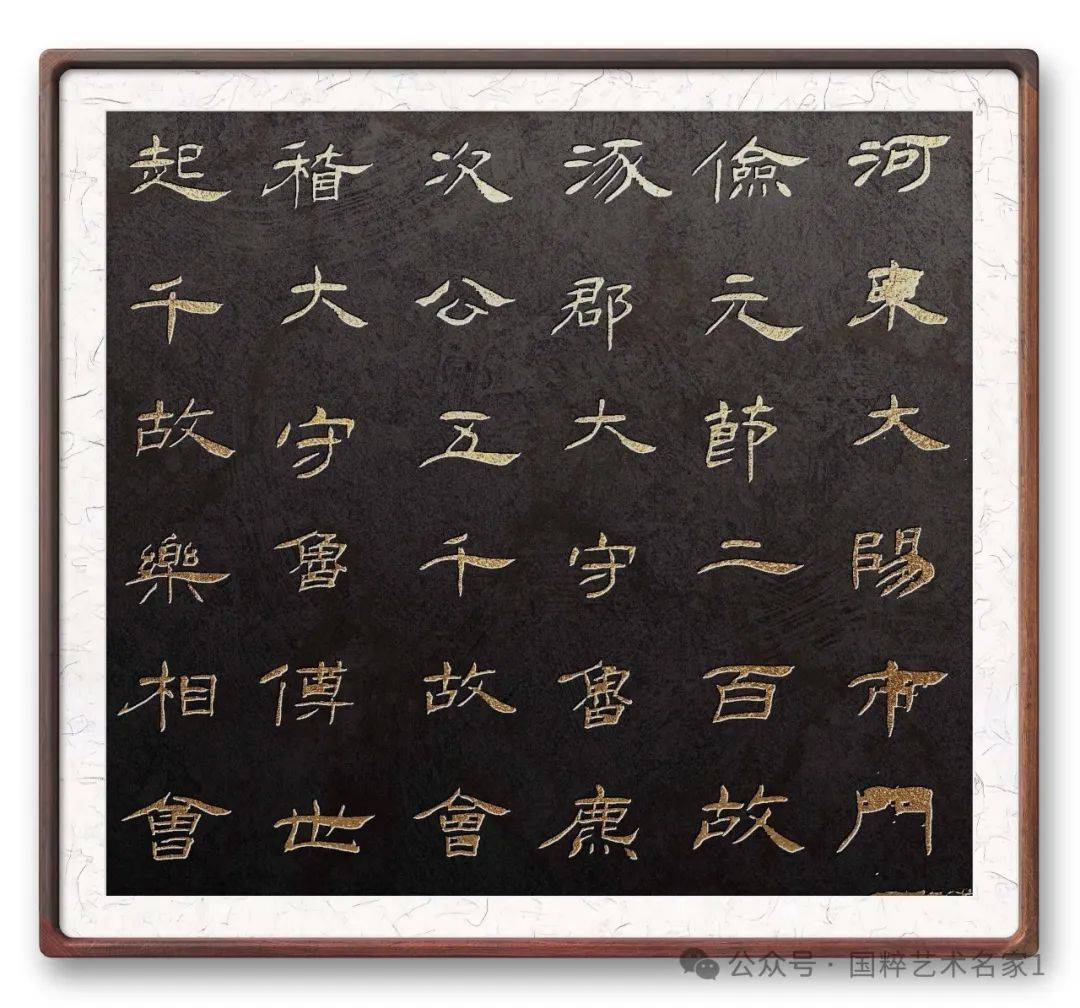 河東大陽門
儉元節二百故
涿郡大守魯麃
次公五千故會
稽大守魯傅世
起千故樂相會
公众号 · 国粹艺术名家1